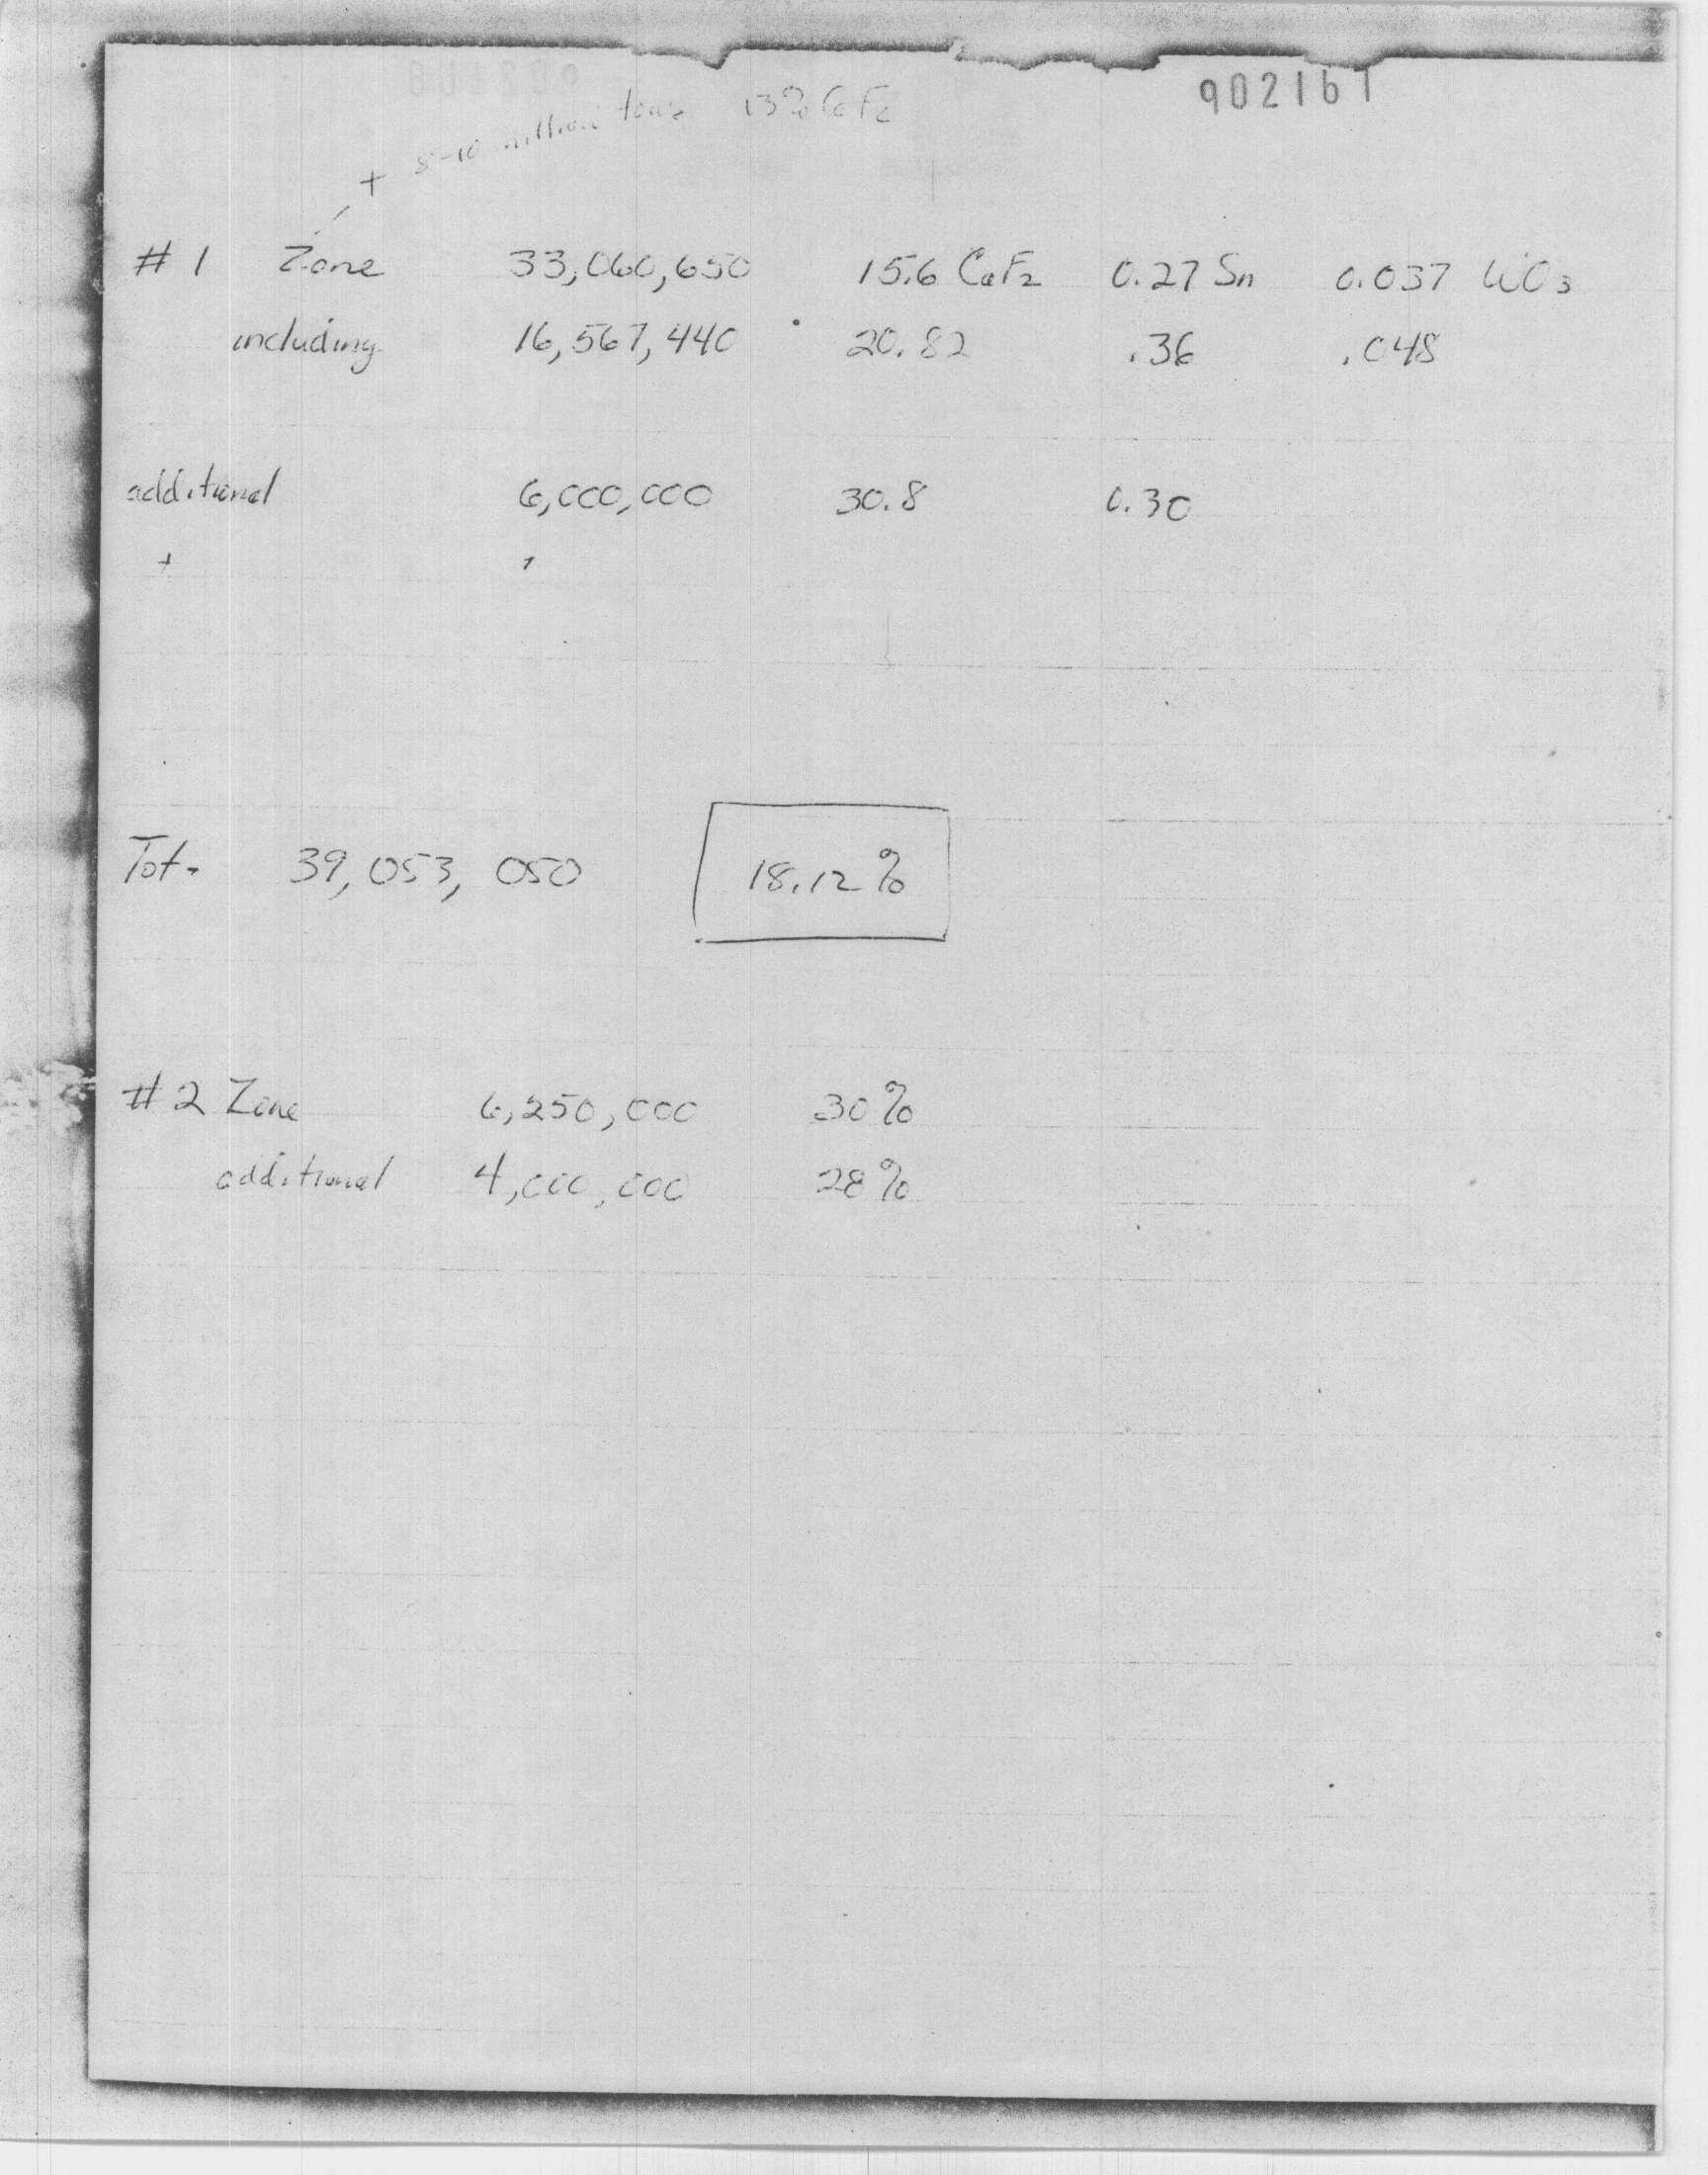 902161
+ 8-10 million tons 13% CaF2
#1 Zone 33,060,650 15.6 CaF2 0.27 Sn 0.037 WO3
including 16,567,440 20.82 .36 .048
additional 6,000,000 30.8 0.30
+
Tot. 39,053,050 18.12%
#2 Zone 6,250,000 30%
additional 4,000,000 28%